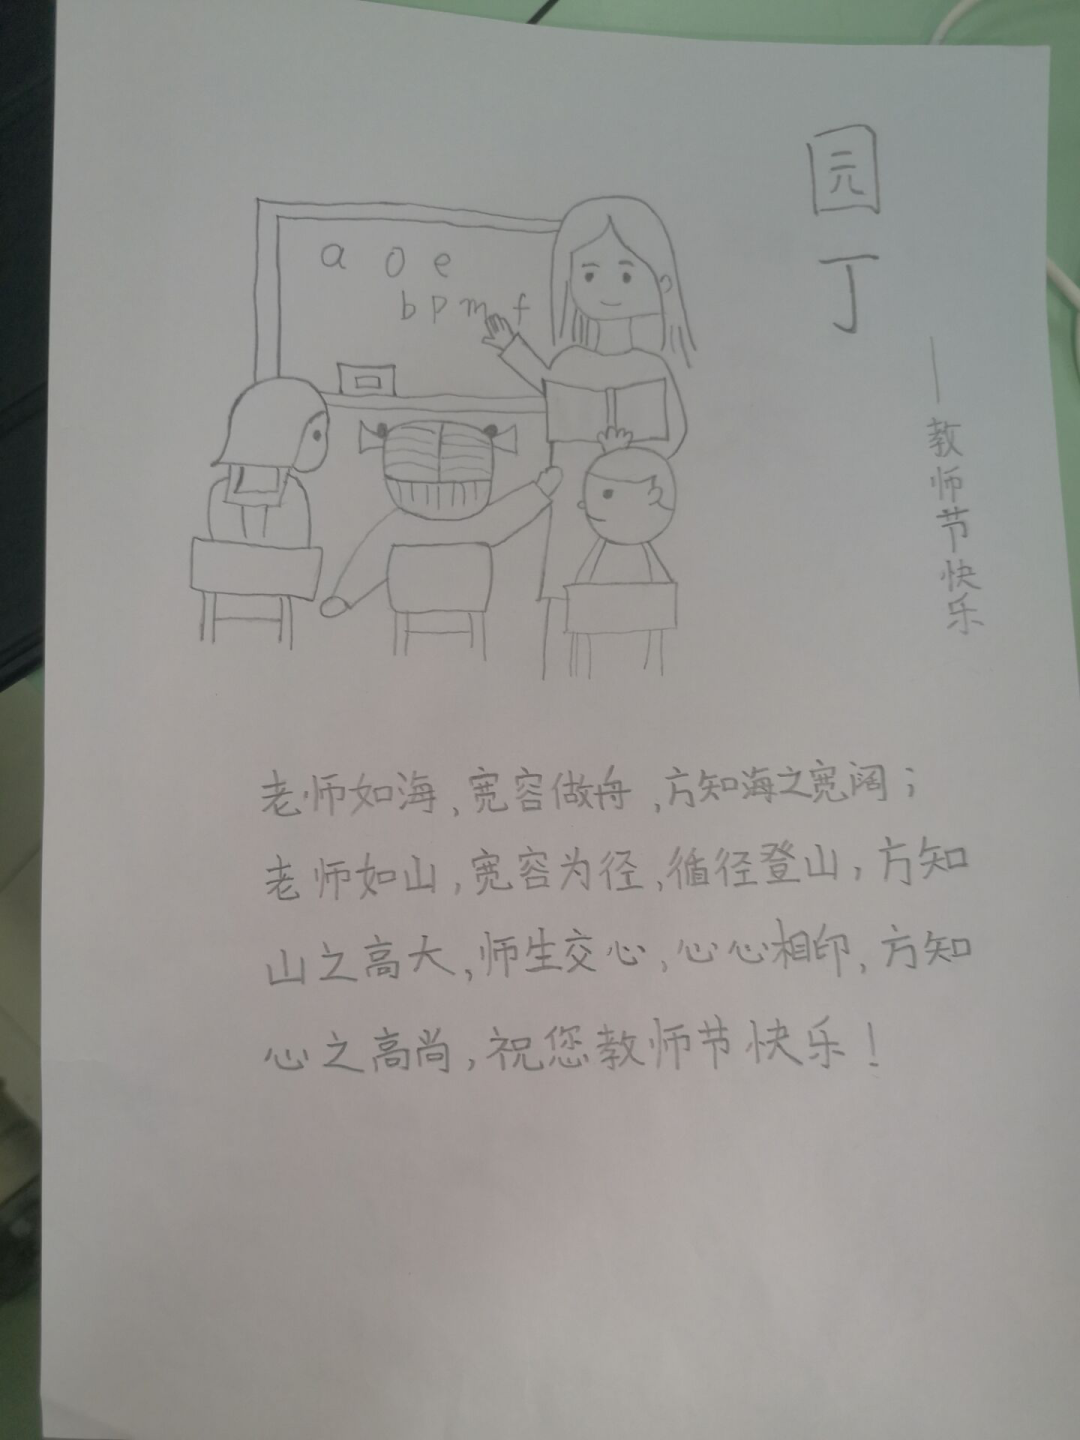 园丁
——教师节快乐
a o e
b p m f
老师如海,宽容做舟,方知海之宽阔;
老师如山,宽容为径,循径登山,方知
山之高大,师生交心,心心相印,方知
心之高尚,祝您教师节快乐!